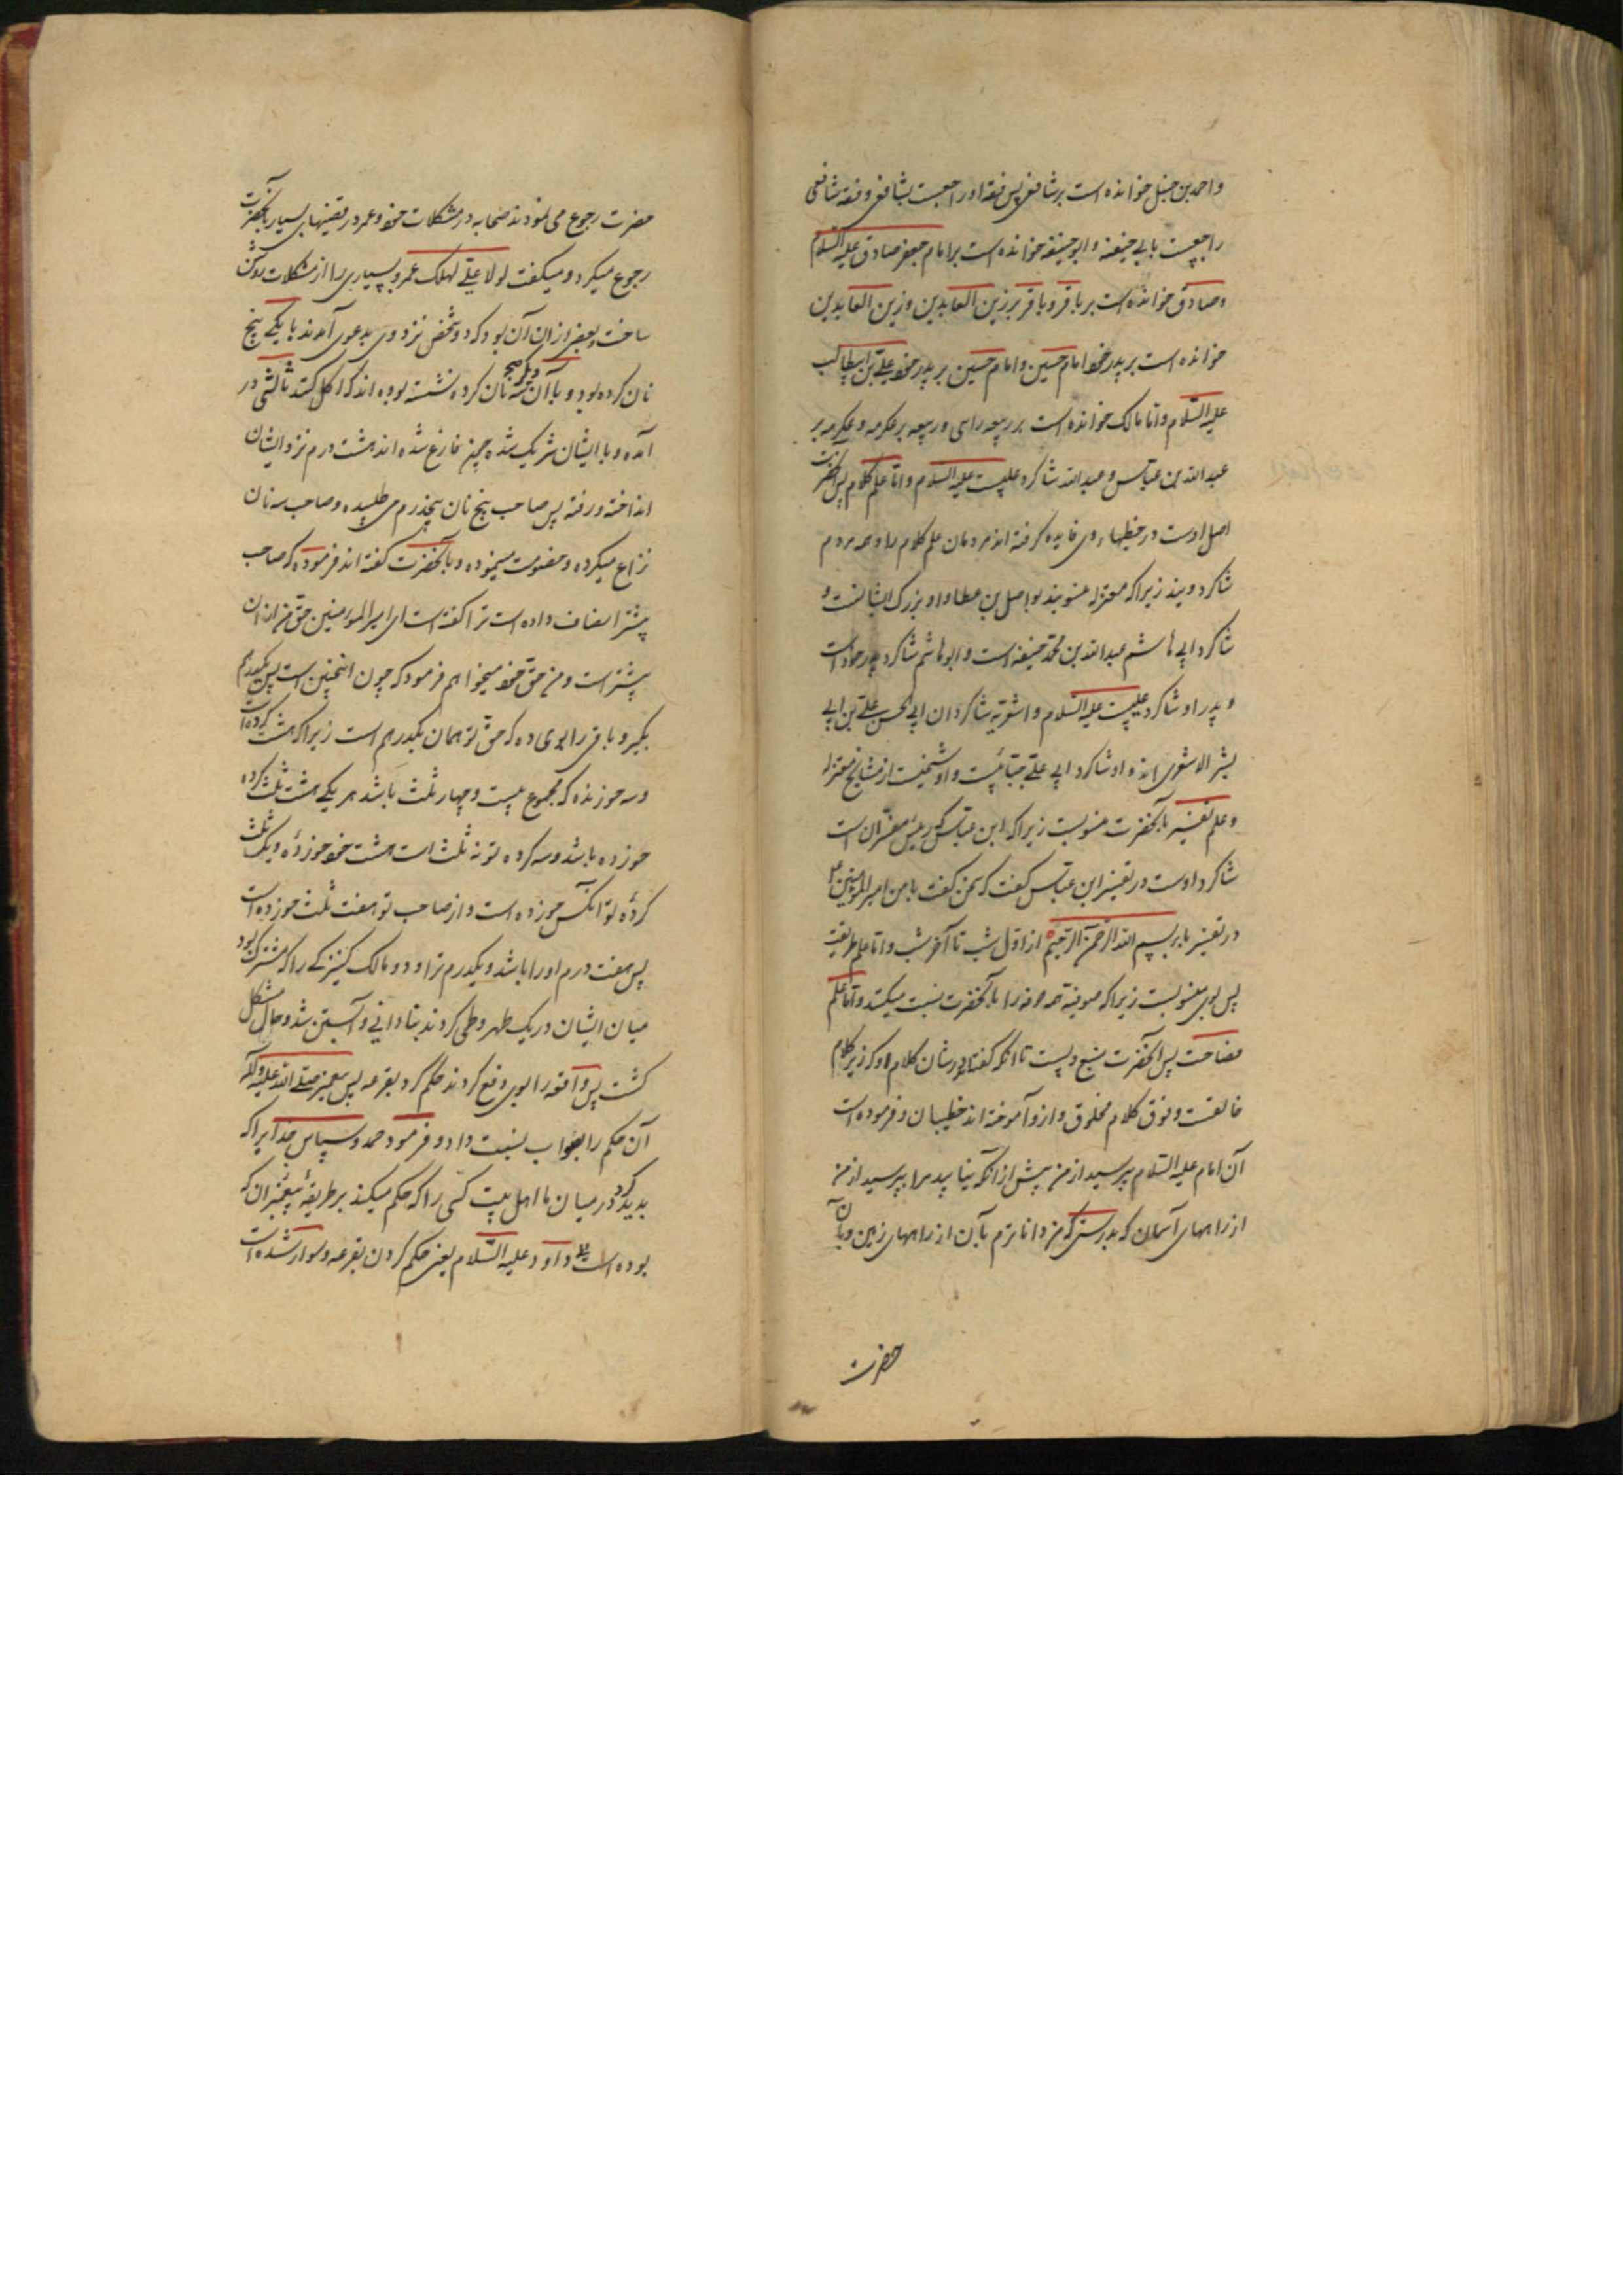 و احمد بن حنبل خوانده است بر شافعی پس فقه او راجعست بشافعی و فقه شافعی
راجعست بابی حنیفه و ابو حنیفه خوانده است بر امام جعفر صادق علیه السلام
و صادق خوانده است بر باقر و باقر بر زین العابدین و زین العابدین
خوانده است بر پدر خود امام حسین و امام حسین بر پدر خود علی بن ابیطالب
علیه السلام و اما مالک خوانده است بر ربیعه رای و ربیعه بر عکرمه و عکرمه بر
عبد الله بن عباس و عبد الله شاکرد علیست علیه السلام و اما علم کلام پس آنحضرت
اصل اوست در خطبهاء وی فایده کرفته اند مردمان علم کلام را و همه مردم
شاکرد ویند زیرا که معتزله منسوبند بواصل بن عطا و او بزرک ایشانست و
شاکرد ابی هاشم عبد الله بن محمد حنیفه است و ابو هاشم شاکرد پدر خود است
و پدر او شاکرد علیست علیه السلام و اشعریه شاکردان ابی الحسن علی بن ابی
بشر الاشعری اند و او شاکرد ابی علی جبائیست و او شیخیست از مشایخ معتزله
و علم تفسیر بآنحضرت منسوبست زیرا که ابن عباس که رییس مفسران است
شاکرد اوست در تفسیر ابن عباس کفت که سخن کفت با من امیر المؤمنین ع
در تفسیر باء بسم الله الرحمن الرحیم از اول شب تا آخر شب و اما علم طریقت
پس بوی منسوبست زیرا که صوفیه همه خرقه را بآنحضرت نسبت میکنند و اما علم
فصاحت پس آنحضرت منبع ویست تا آنکه کفته اند در شان کلام او که زیر کلام
خالقست و فوق کلام مخلوق و ازو آموخته اند خطیبان و فرموده است
آن امام علیه السلام بپرسید از من پیش از آنکه نیابید مرا بپرسید از من
از راههای آسمان که بدرستی که من داناترم بآن از راههای زمین و بآن
حضرت
حضرت رجوع می نمودند صحابه در مشکلات خود و عمر در قضیهای بسیار بآنحضرت
رجوع میکرد و میکفت لولا علی لهلک عمر و بسیاری را از مشکلات روشن
ساخت و بعضی از ان آن بود که دو شخص نزد وی بدعوی آمدند با یکی پنج
نان کرده بود و با آن دیگر سه نان کرده نشسته بوده اند که اکل کنند ثالثی در
آمده و با ایشان شریک شده چون فارغ شده اند هشت درم نزد ایشان
انداخته و رفته پس صاحب پنج نان پنج درم می طلبیده و صاحب سه نان
نزاع میکرده و خصومت مینموده و بآنحضرت کفته اند فرموده که صاحب
پیشتر انصاف داده است ترا کفته است ای امیر المؤمنین حق من از ان
پیشتر است و من حق خود میخواهم فرمود که چون اینچنین است پس یکدرم
بکیر و باقی را بوی ده که حق تو همان یکدرهم است زیرا که هشت کرده است
و سه خورنده که مجموع بیست و چهار ثلث باشد هر یکی هشت ثلث کرده
خورده باشد و سه کرده تو نه ثلث است هشت خود خورده و یک ثلث
کرده تو آنکس خورده است و از صاحب تو هفت ثلث خورده است
پس هفت درم او را باشد و یکدرم ترا و دو مالک کنیزکی را که مشترک بود
میان ایشان در یک طهر وطی کردند بنادانی و آبستن شد و حال مشکل
کشت پس واقعه را بوی رفع کردند حکم کرد بقرعه پس پیغمبر صلی الله علیه و آله
آن حکم را بصواب نسبت داد و فرمود حمد و سپاس خدایرا که
پدید کرد در میان ما اهل بیت کسی را که حکم میکند بر طریقه پیغمبران که
بوده است داود علیه السلام یعنی حکم کردن بقرعه و سوار شده است